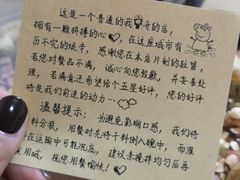 这是一个普通的我开的店，
拥有一颗拼搏的心♡，在这座城市有
历不完的故事，感谢您在本店片刻的驻留，
若您对餐品不满，诚心向您抱歉，并妥善处
理，若满意还希望给个五星好评，您的好评
将是我们前进的动力…
温馨提示：为避免影响口感，我们将
料分装，用餐时先将干料倒入碗中，而湿
在运输中可能沉底，建议求搅拌均匀后再
食用哦，祝您用餐愉快！